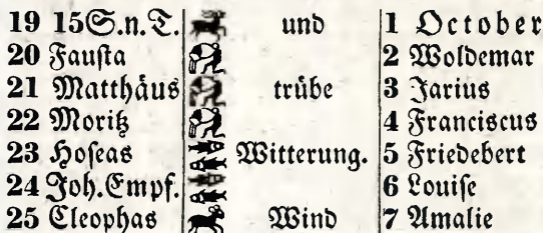 19 15 S.n.T. und 1 October
20 Fausta 2 Woldemar
21 Matthäus trübe 3 Jarius
22 Moritz 4 Franciscus
23 Hoseas Witterung. 5 Friedebert
24 Joh.Empf. 6 Louise
25 Cleophas Wind 7 Amalie